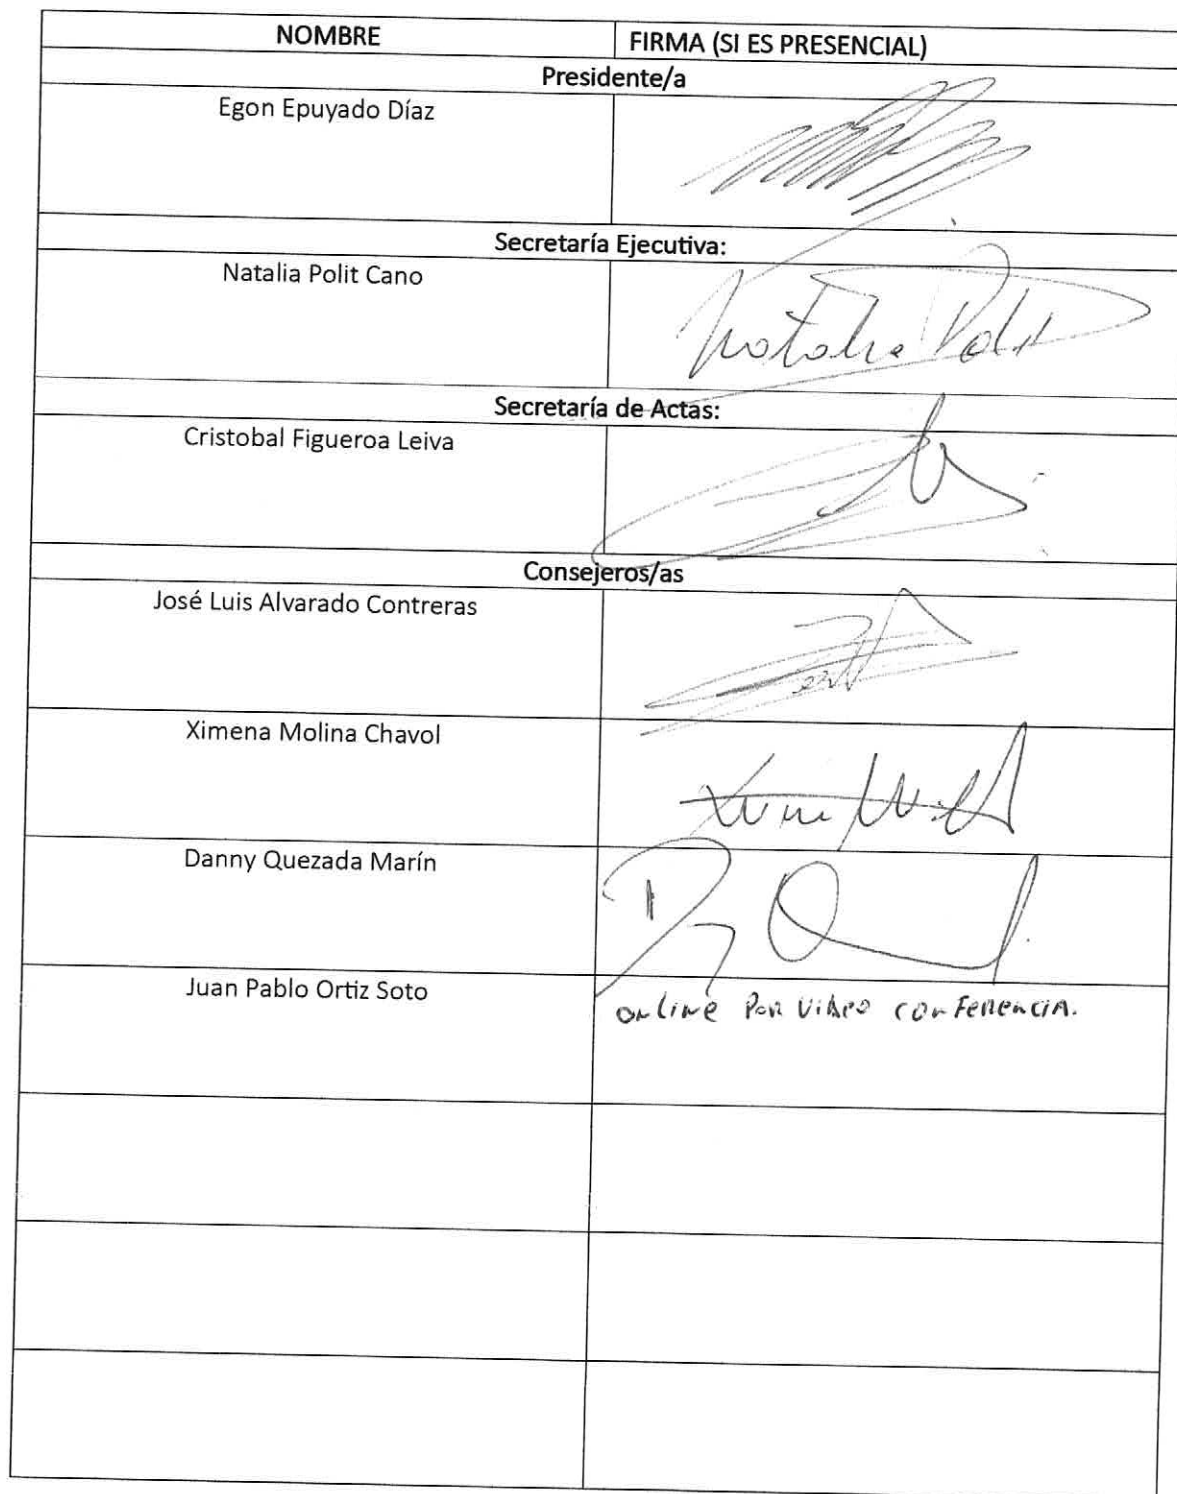 NOMBRE FIRMA (SI ES PRESENCIAL)
Presidente/a
Egon Epuyado Díaz
Secretaría Ejecutiva:
Natalia Polit Cano
Natalia Polit
Secretaría de Actas:
Cristobal Figueroa Leiva
Consejeros/as
José Luis Alvarado Contreras
Ximena Molina Chavol
Danny Quezada Marín
Juan Pablo Ortiz Soto
online Por Video conFerencia.